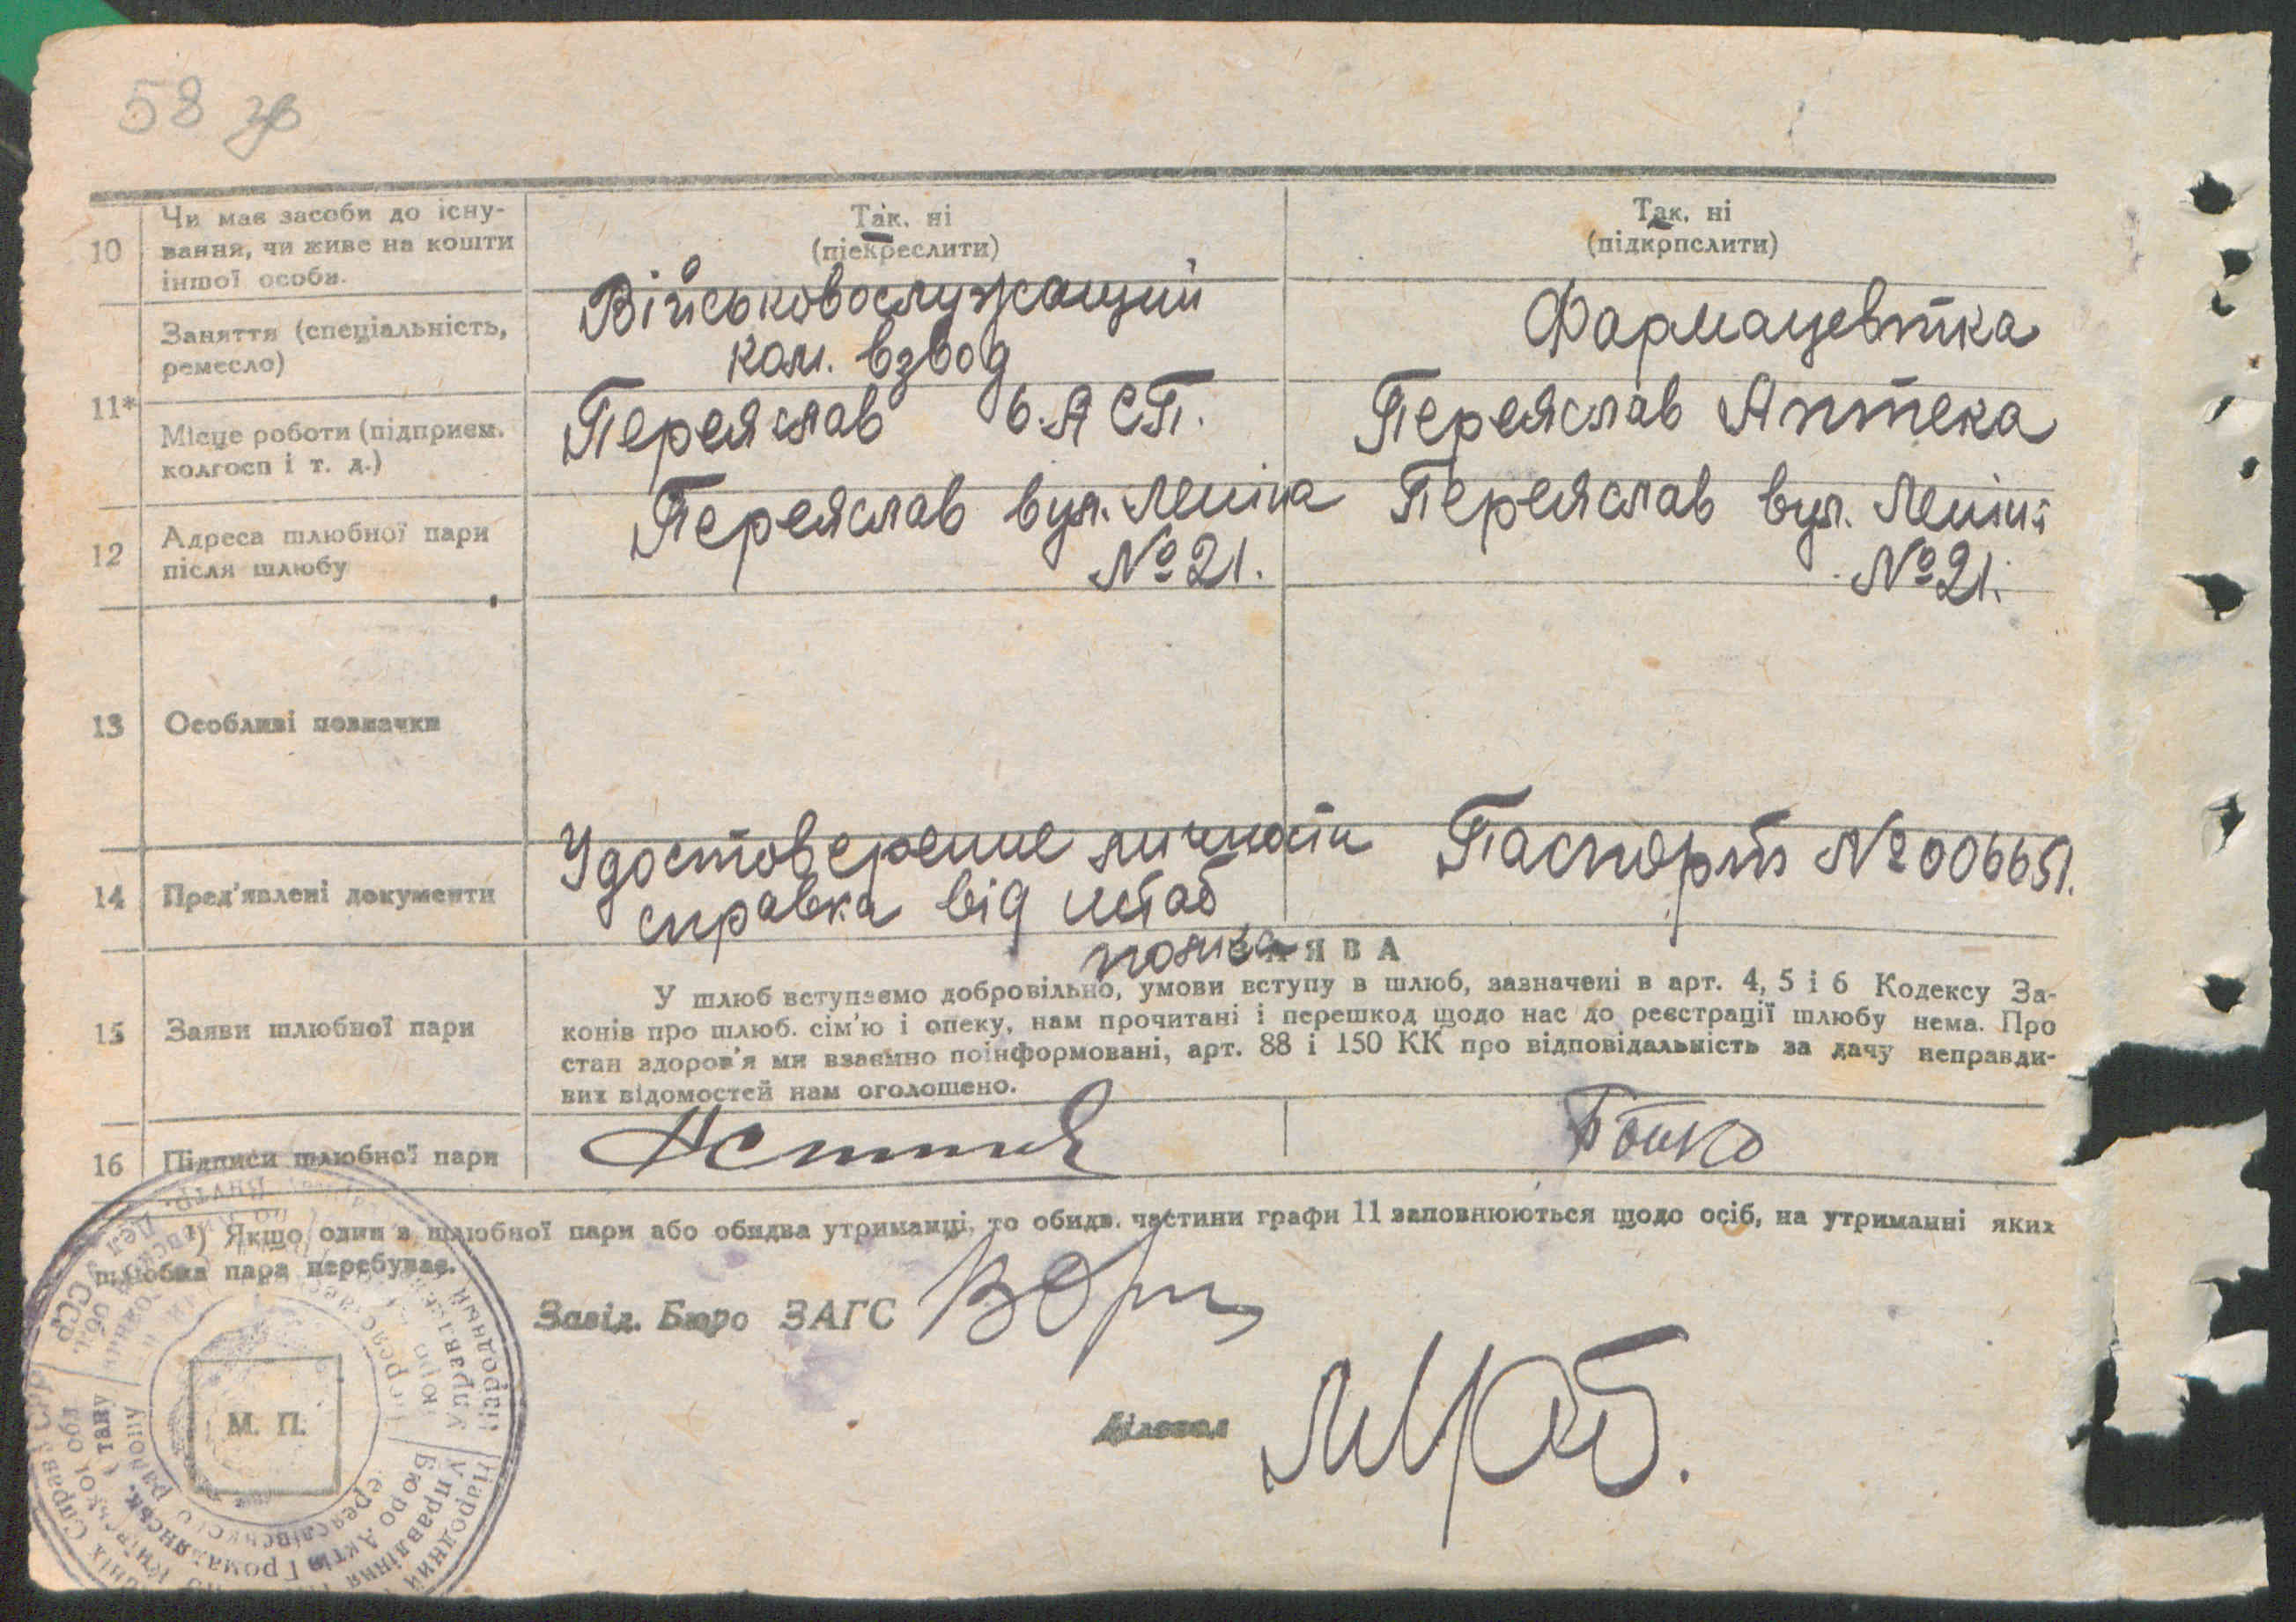 58 зв
10 Чи має засоби до існу-
вання, чи живе на кошти
іншої особи.
Так, ні
(піекреслити)
Так, ні
(підкрпслити)
11*
Заняття (спеціальність,
ремесло)
Військовослужащий
ком. взвод
Фармацевтка
Місце роботи (підприєм.
колгосп і т. д.)
Переяслав 6. А СП.
Переяслав Аптека
12 Адреса шлюбної пари
після шлюбу
Переяслав вул. Леніна
№ 21.
Переяслав вул. Леніна
№ 21.
13 Особливі позначки
14 Пред'явлені документи
Удостоверение личности
справка від штаб
полка
Паспорт № 006651.
ЗАЯВА
15 Заяви шлюбної пари
У шлюб вступаємо добровільно, умови вступу в шлюб, зазначені в арт. 4, 5 і 6 Кодексу За-
конів про шлюб. сім'ю і опеку, нам прочитані і перешкод щодо нас до реєстрації шлюбу нема. Про
стан здоров'я ми взаємно поінформовані, арт. 88 і 150 КК про відповідальність за дачу неправди-
вих відомостей нам оголошено.
16 Підписи шлюбної пари
Бойко
¹) Якщо один з шлюбної пари або обидва утриманці, то обидв. частини графи 11 заповнюються щодо осіб, на утриманні яких
шлюбна пара перебуває.
Завід. Бюро ЗАГС
Діловод
М. П.